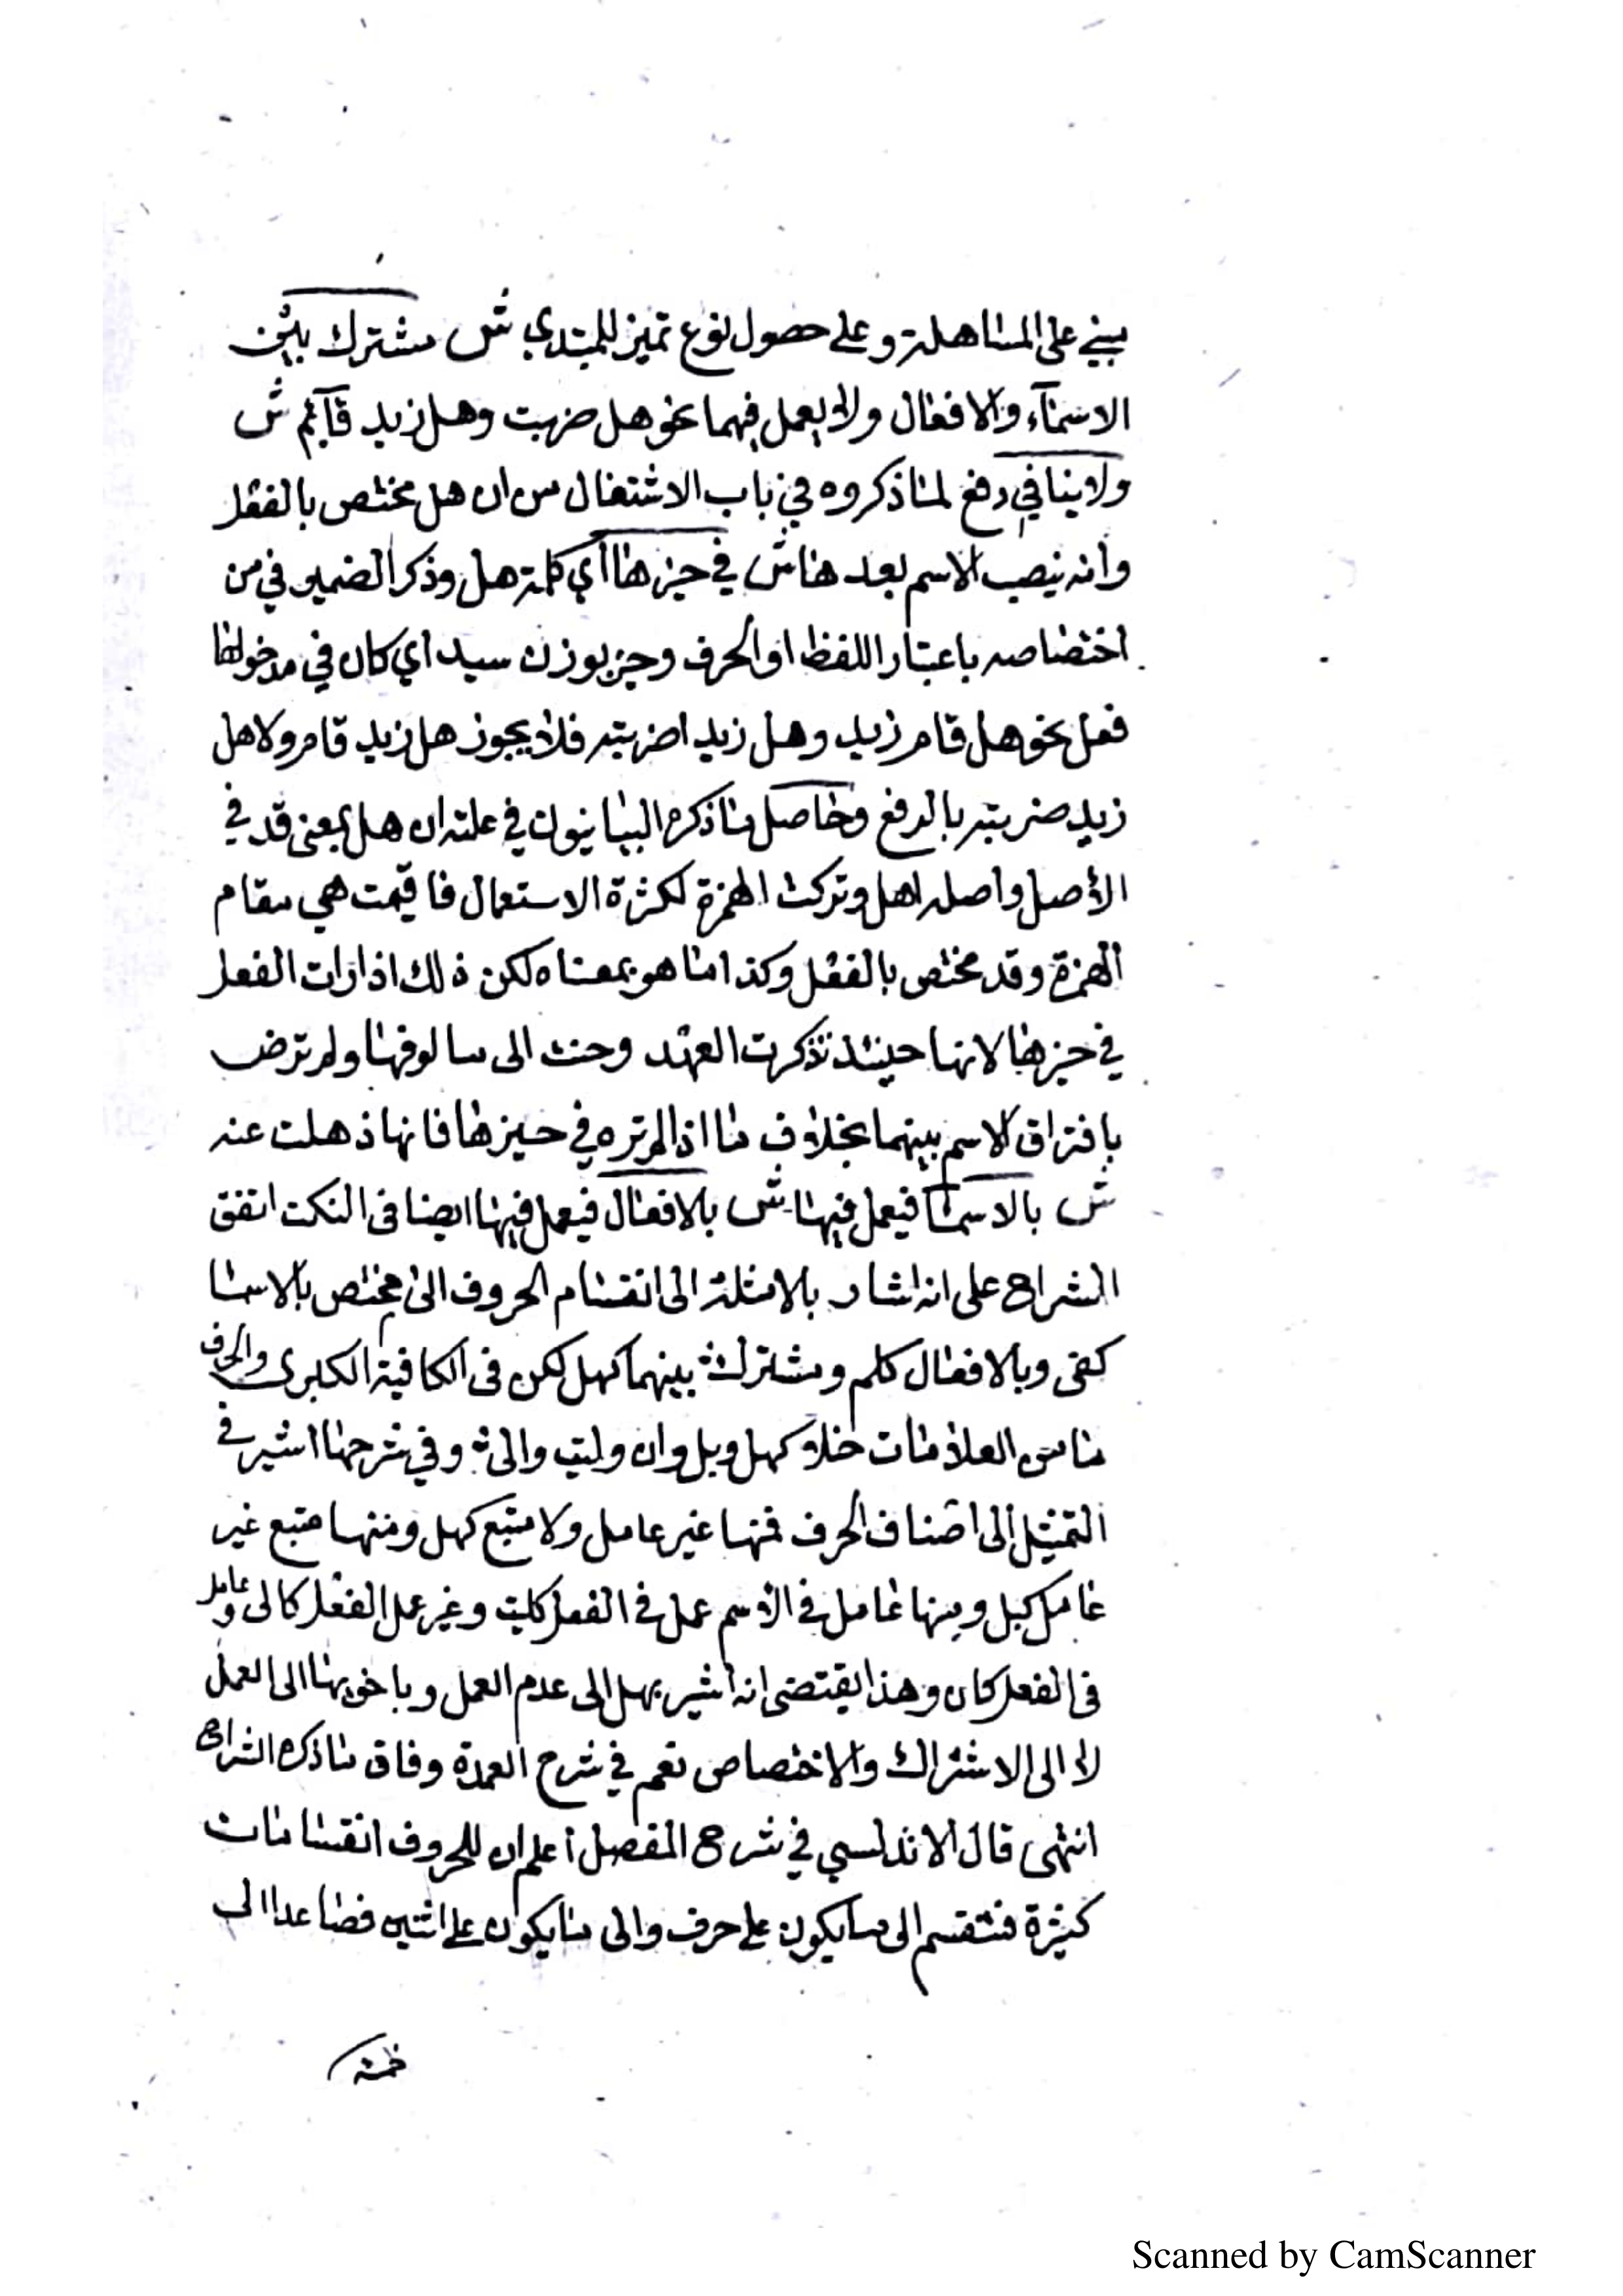 مبني على المساهلة وعلى حصول نوع تميز للمبتدي ش مشترك بين
الاسمآء والافعال ولا يعمل فيهما نحو هل ضربت وهل زيد قآئم ش
ولا ينافي دفع لما ذكروه في باب الاشتغال من ان هل مختص بالفعل
وانه ينصب الاسم بعدها ش في حيزها أي كلمة هل وذكر الضمير في من
اختصاصه باعتبار اللفظ او الحرف وحيز بوزن سيد أي كان في مدخولها
فعل نحو هل قام زيد وهل زيد اضربته فلا يجوز هل زيد قام ولا هل
زيد ضربته بالرفع وحاصل ما ذكره البيانيون في علته ان هل بمعنى قد في
الأصل واصله اهل وتركت الهمزة لكثرة الاستعمال فاقيمت هي مقام
الهمزة وقد مختص بالفعل وكذا ما هو بمعناه لكن ذلك اذا رات الفعل
في حيزها لانها حينئذ تذكرت العهد وحنت الى مالوفها ولم ترض
بافتراق الاسم بينهما بخلاف ما اذا لم تره في حيزها فانها ذهلت عنه
ش بالاسما فيعمل فيها ش بالافعال فيعمل فيها ايضا في النكت اتفق
الشراح على انه اشار بالامثلة الى انقسام الحروف الى مختص بالاسما
كفى وبالافعال كلم ومشترك بينهما كهل لكن في الكافية الكبرى والحرف
ما من العلامات خلا كهل وبل وان وليت والى وفي شرحها اشير في
التمثيل الى اصناف الحرف فمنها غير عامل ولا متبع كهل ومنها متبع غير
عامل كبل ومنها عامل في الأسم عمل في الفعل كليت وغير عمل الفعل كالى وعامل
في الفعل كان وهذا يقتضى انه اشير بهل الى عدم العمل وباخويها الى العمل
لا الى الاشتراك والاختصاص نعم في شرح العمدة وفاق ما ذكره الشراح
انتهى قال الاندلسي في شرح المفصل أعلم ان للحروف انقسامات
كثيرة فتنقسم الى ما يكون على حرف والى ما يكون على اثنين فصاعدا الى
خمسة
Scanned by CamScanner